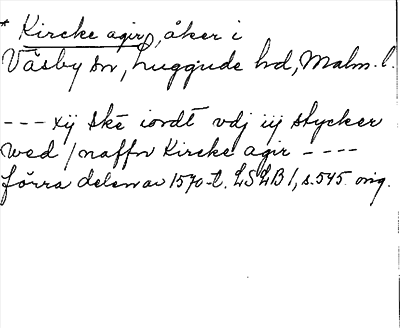 * Kircke agir, åker i
Väsby sn, Luggude hd, Malm. l.
--- xij skē iordt vdj iij stycker
wed / naffn Kircke agir ----
förra delen av 1570-t. LSLB 1, s. 545. orig.